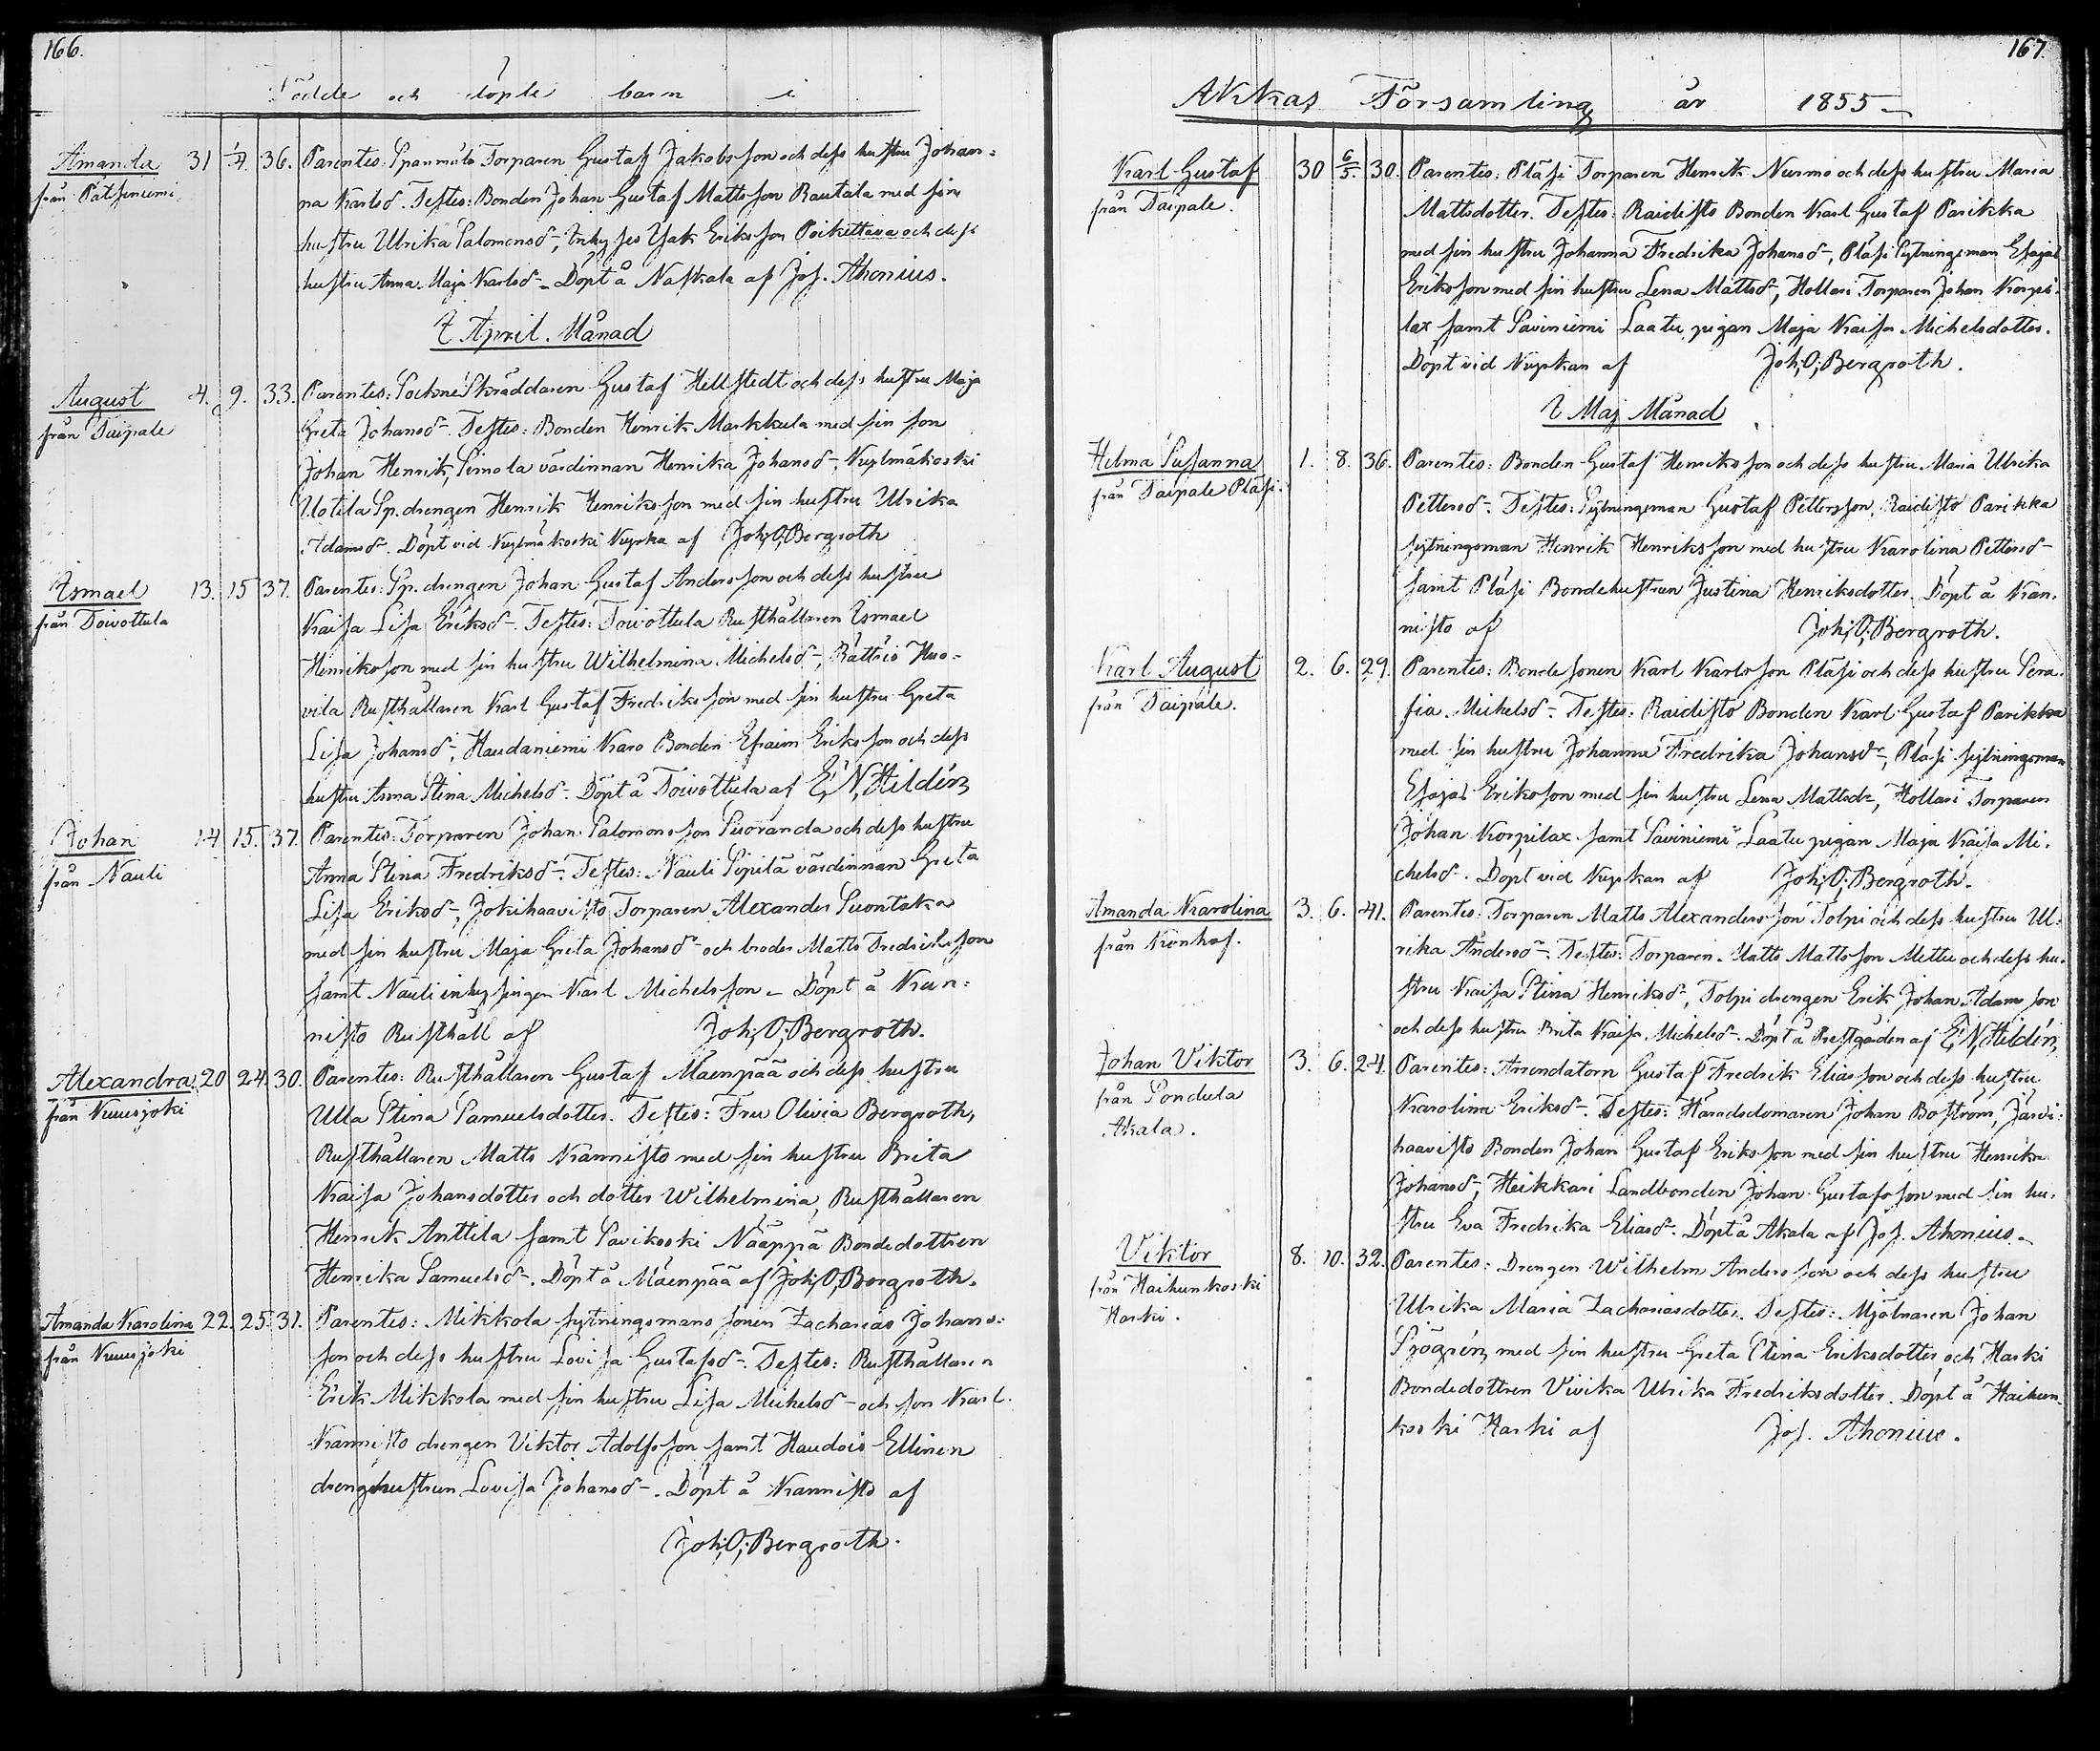 166.
Födde och döpte barn i
Amanda 31 1/4. 36. Parentes: Spanmäts Torparen Gustaf Jakobsson och dess hustru Johan-
från Patsiniemi na Karlsd. Testes: Bonden Johan Gustaf Mattsson Rautala med sin
hustru Ulrika Salomonsd-, Inhyses Isak Eriksson Poikettava och dess
hustru Anna Maja Karlsd- Döpt å Naskala af Jos. Ahonius.
I April Månad
August 4. 9. 33. Parentes: Sockne Skräddaren Gustaf Hellstedt och dess hustru Maja
från Taipale Greta Johansd-. Testes: Bonden Henrik Markkula med sin son
Johan Henrik, Simola värdinnan Henrika Johansd-, Kylmäkoski
Uotila Sp. drengen Henrik Henriksson med sin hustru Ulrika
Adamsd-. Döpt vid Kylmäkoski Kyrka af Joh; O; Bergroth
Ismael 13. 15 37. Parentes: Sp. drengen Johan Gustaf Andersson och dess hustru
från Toivottula Kaisa Lisa Eriksd-. Testes: Toivottula Rusthållaren Ismael
Henriksson med sin hustru Wilhelmina Michelsd-, Rättiö Huo-
vila Rusthållaren Karl Gustaf Fredriksson med sin hustru Greta
Lisa Johansd-, Haudaniemi Karo Bonden Efraim Eriksson och dess
hustru Anna Stina Michelsd-. Döpt å Toivottula af E; N; Hildén
Johan 14 15. 37. Parentes: Torparen Johan Salomonsson Suoranda och dess hustru
från Nauli Anna Stina Fredriksd-. Testes: Nauli Pipilä värdinnan Greta
Lisa Eriksd-, Jokihaavisto Torparen Alexander Suontaka
med sin hustru Maja Greta Johansd- och broder Matts Fredriksson
samt Nauli inhysingen Karl Michelsson - Döpt å Kan-
nisto Rusthåll af Joh; O; Bergroth.
Alexandra 20 24. 30. Parentes: Rusthållaren Gustaf Mäenpää och dess hustru
från Kuusjoki Ulla Stina Samuelsdotter. Testes: Fru Olivia Bergroth,
Rusthållaren Matts Kannisto med sin hustru Brita
Kaisa Johansdotter och dotter Wilhelmina, Rusthållaren
Henrik Anttila samt Savikoski Nääppä Bondedottren
Henrika Samuelsd-. Döpt å Mäenpää af Joh; O; Bergroth.
Amanda Karolina 22. 25. 31. Parentes: Mikkola sytningsmans sonen Zacharias Johans-
från Kuusjoki son och dess hustru Lovisa Gustafsd-. Testes: Rusthållaren
Erik Mikkola med sin hustru Lisa Michelsd- och son Karl
Kannisto drengen Viktor Adolfsson samt Haudois Ellinen
drengehustrun Lovisa Johansd-. Döpt å Kannisto af
Joh; O; Bergroth.
167.
Akkas Församling år 1855-
Karl Gustaf 30 6/5. 30. Parentes: Pläsi Torparen Henrik Nurmo och dess hustru Maria
från Taipale. Mattsdotter. Testes: Raidisto Bonden Karl Gustaf Parikka
med sin hustru Johanna Fredrika Johansd-, Pläsi Sytningsman Esajas
Eriksson med sin hustru Lena Mattsd-, Hollari Torparen Johan Korpi-
lax samt Saviniemi Laatu pigan Maja Kaisa Michelsdotter.
Döpt vid Kyrkan af Joh; O; Bergroth.
I Maj Månad
Helma Susanna 1. 8. 36. Parentes: Bonden Gustaf Henriksson och dess hustru Maria Ulrika
från Taipale Pläsi. Pettersd-. Testes: Sytningsman Gustaf Pettersson, Raidisto Parikka
sytningsman Henrik Henriksson med hustru Karolina Pettersd-
samt Pläsi Bondehustrun Justina Henriksdotter. Döpt å Kan-
nisto af Joh; O; Bergroth.
Karl August 2. 6. 29. Parentes: Bondesonen Karl Karlsson Pläsi och dess hustru Sera-
från Taipale. fia Michelsd-. Testes: Raidisto Bonden Karl Gustaf Parikka
med sin hustru Johanna Fredrika Johansd-, Pläsi sytningsman
Esajas Eriksson med sin hustru Lena Mattsd-, Hollari Torparen
Johan Korpilax samt Saviniemi Laatu pigan Maja Kaisa Mi-
chelsd-. Döpt vid Kyrkan af Joh; O; Bergroth.
Amanda Karolina 3. 6. 41. Parentes: Torparen Matts Alexandersson Tolpi och dess hustru Ul-
från Konhof. rika Andersd-. Testes: Torparen Matts Mattsson Mettu och dess hu-
stru Kaisa Stina Henriksd-, Tolpi drengen Erik Johan Adamsson
och dess hustru Brita Kaisa Michelsd-. Döpt å Prestgården af E; N; Hildén,
Johan Viktor 3. 6. 24. Parentes: Arrendatorn Gustaf Fredrik Eliasson och dess hustru
från Pondula Karolina Eriksd-. Testes: Häradsdomaren Johan Boström, Järvi-
Akala. haavisto Bonden Johan Gustaf Eriksson med sin hustru Henrika
Johansd-, Heikkari Landbonden Johan Gustafsson med sin hu-
stru Eva Fredrika Eliasd-. Döpt å Akala af Jos. Ahonius-
Viktor 8. 10. 32. Parentes: Drengen Wilhelm Andersson och dess hustru
från Haihunkoski Ulrika Maria Zachariasdotter. Testes: Mjölnaren Johan
Harki. Sjögrén med sin hustru Greta Stina Eriksdotter och Harki
Bondedottren Vivika Ulrika Fredriksdotter. Döpt å Haihun-
koski Harki af Jos. Ahonius.